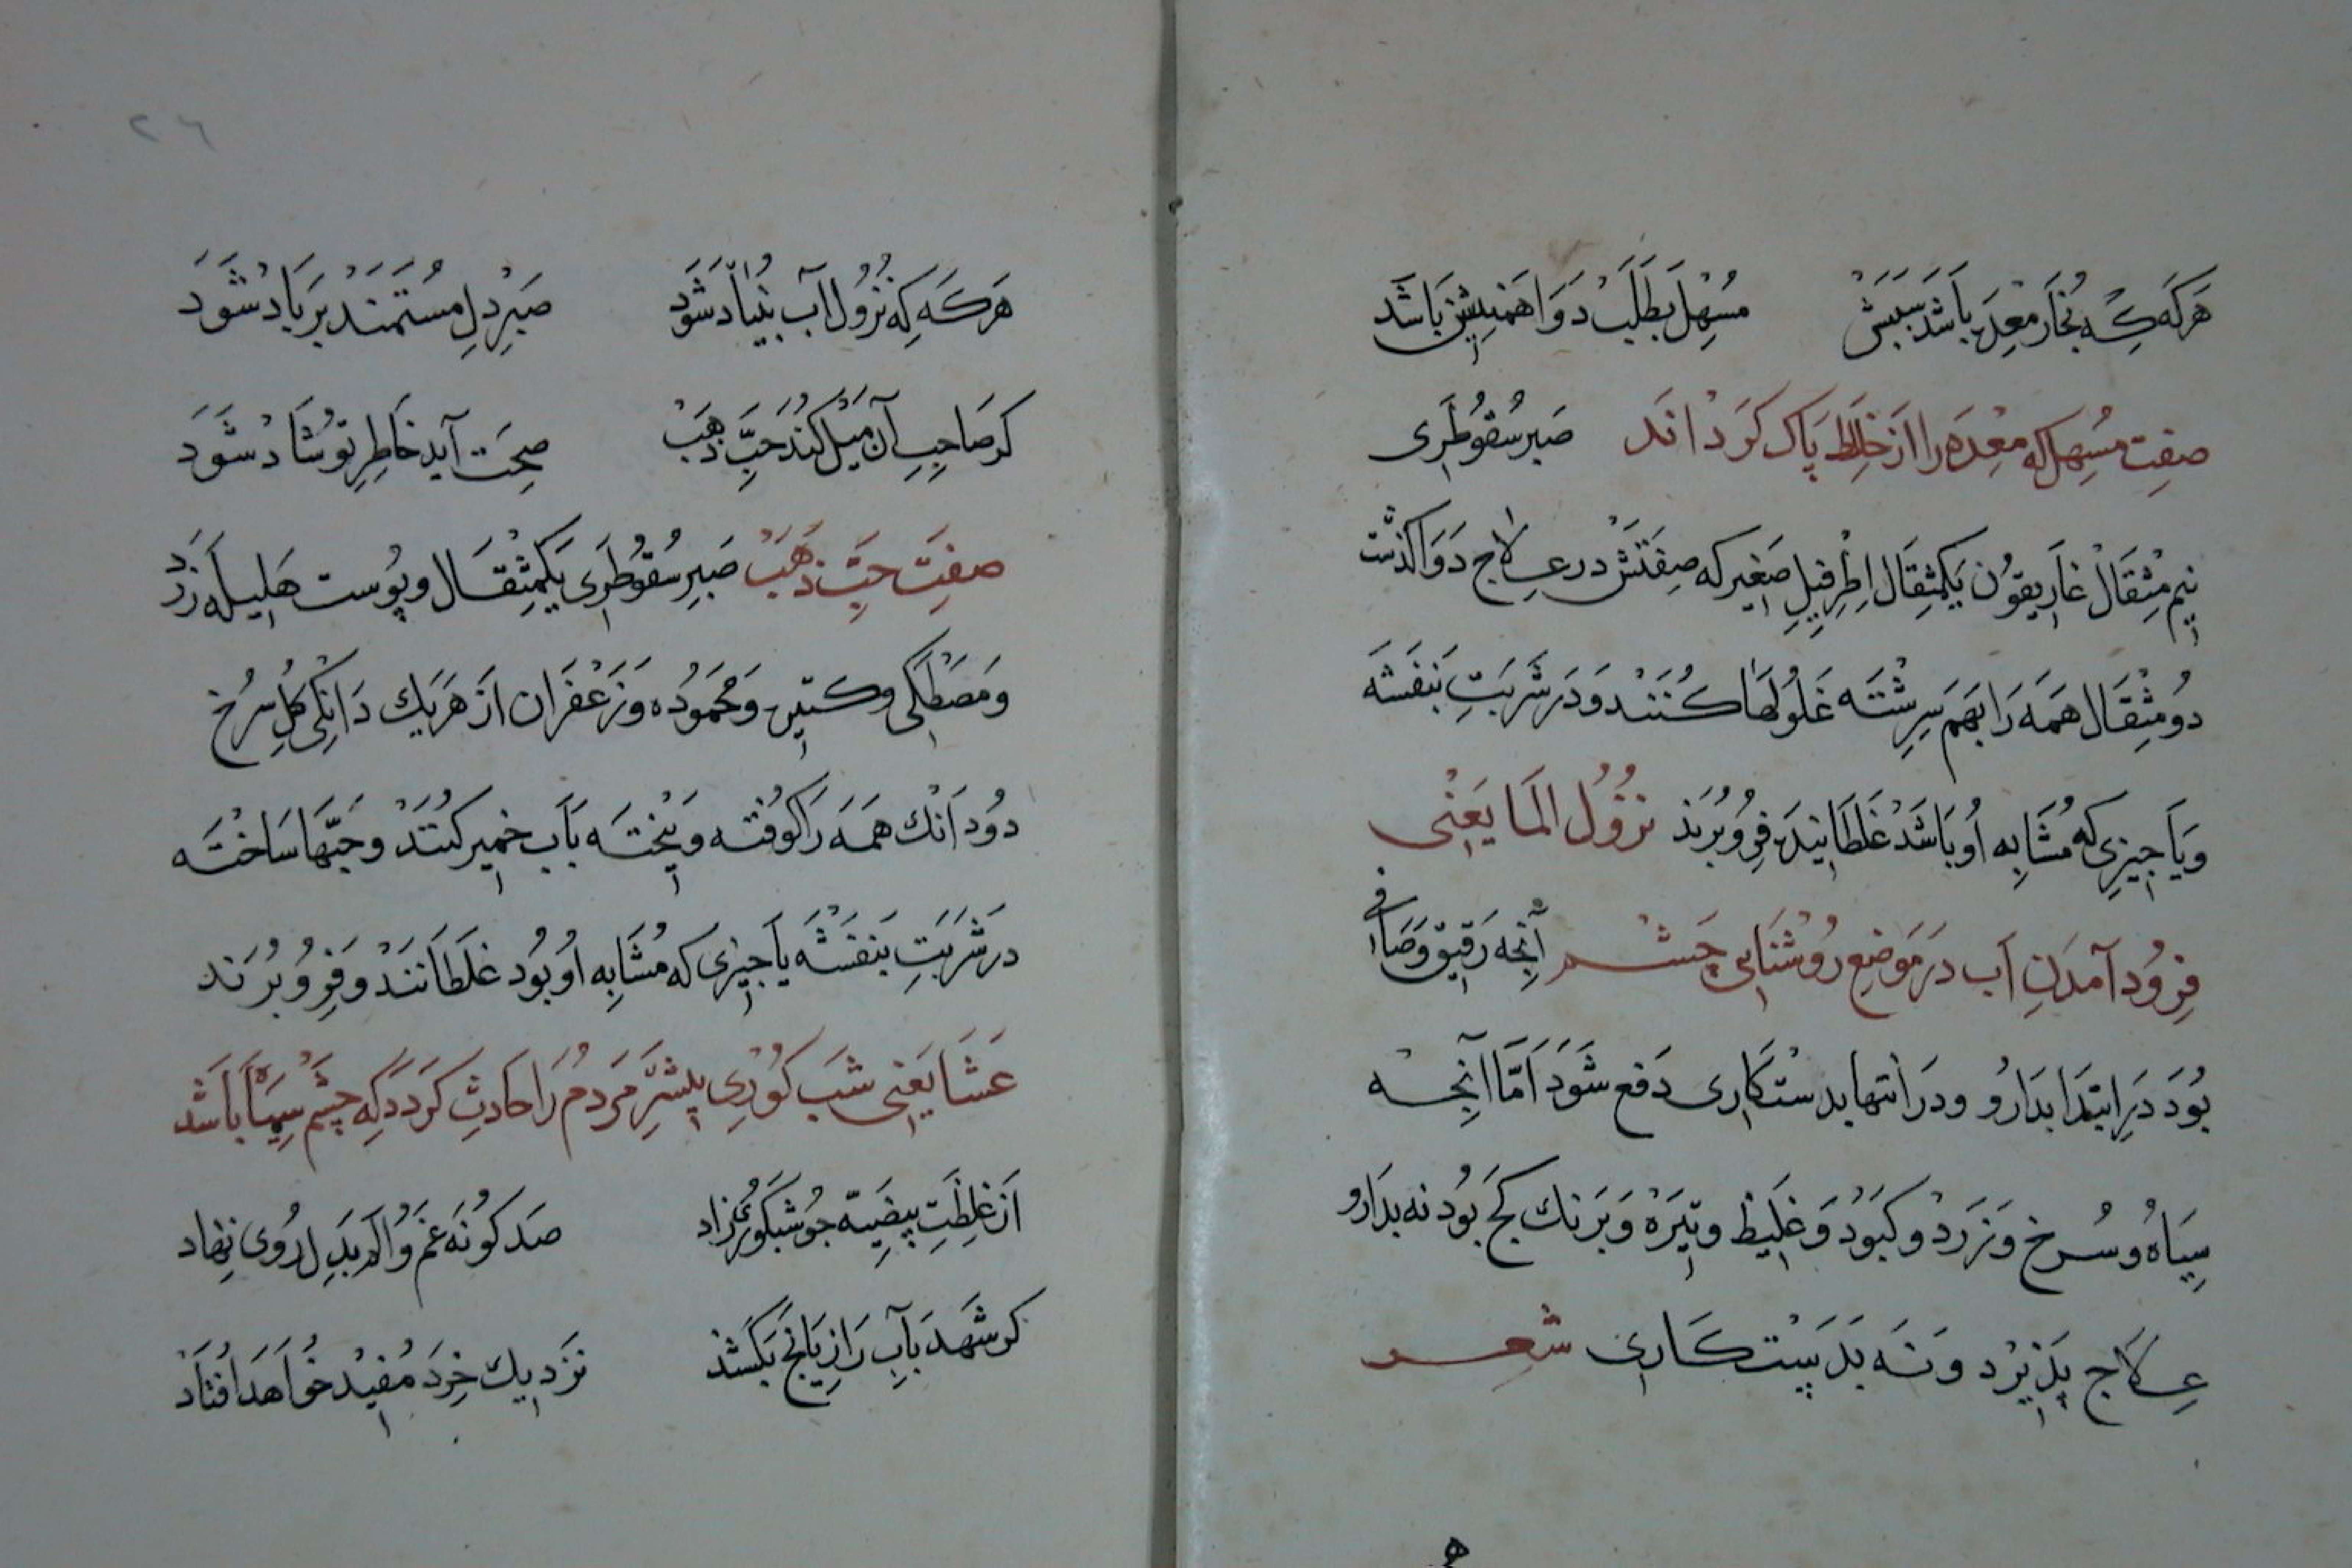 هرکه که بخار معده باشد سببش مسهل بطلب دوا همنیش باشد
صفت مسهل که معده را از خلط پاک کرداند صبر سقوطری
نیم مثقال غاریقون یکمثقال اطرفیل صغیر که صفتش در علاج دوا کذشت
دو مثقال همه را بهم سرشته غلولها کنند و در شربت بنفشه
ویا چیزی که مشابه او باشد غلطانیده فرو برند نزول الما یعنی
فرود آمدن آب در موضع روشنایی چشم آنچه رقیق و صافی
بود در ابتدا بدارو ودر انتها بدستکاری دفع شود اما آنچه
سیاه و سرخ و زرد و کبود و غلیظ و تیره و برنك کج بود نه بدارو
علاج پذیرد و نه بدستکاری شعر
۲٦
هرکه که نزول آب بنیاد شود صبر دل مستمند بر باد شود
کر صاحب آن میل کند حب ذهب صحت آید خاطر تو شاد شود
صفت حب ذهب صبر سقوطری یکمثقال و پوست هلیله زرد
و مصطکی و کتیره و محموده و زعفران از هر یك دانکی کل سرخ
دو دانك همه را کوفته و بیخته بآب خمیر کنند و حبها ساخته
در شربت بنفشه یا چیزی که مشابه او بود غلطانند و فرو برند
عشا یعنی شب کوری بیشتر مردم را حادث کردد که چشم سیاه باشد
از غلظت بیضیه چو شبکوری زاد صد کونه غم و الم بدل روی نهاد
کر شهد بآب رازیانج بکشد نزدیك خرد مفید خواهد افتاد